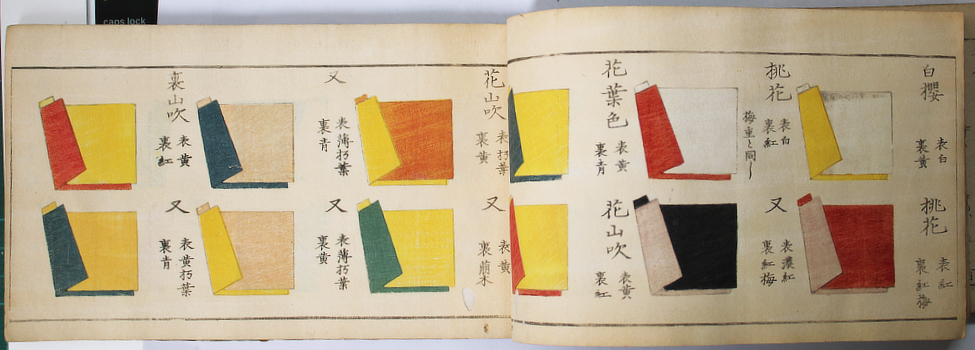 白櫻
表白
裏黄
桃花
表紅
裏紅梅
桃花
表白
裏紅
梅重と同し
又
表濃紅
裏紅梅
花葉色
表黄
裏青
花山吹
表黄
裏紅
花山吹
表朽葉
裏黄
又
表黄
裏萠木
又
表薄朽葉
裏青
又
表薄朽葉
裏黄
裏山吹
表黄
裏紅
又
表黄朽葉
裏青
caps lock